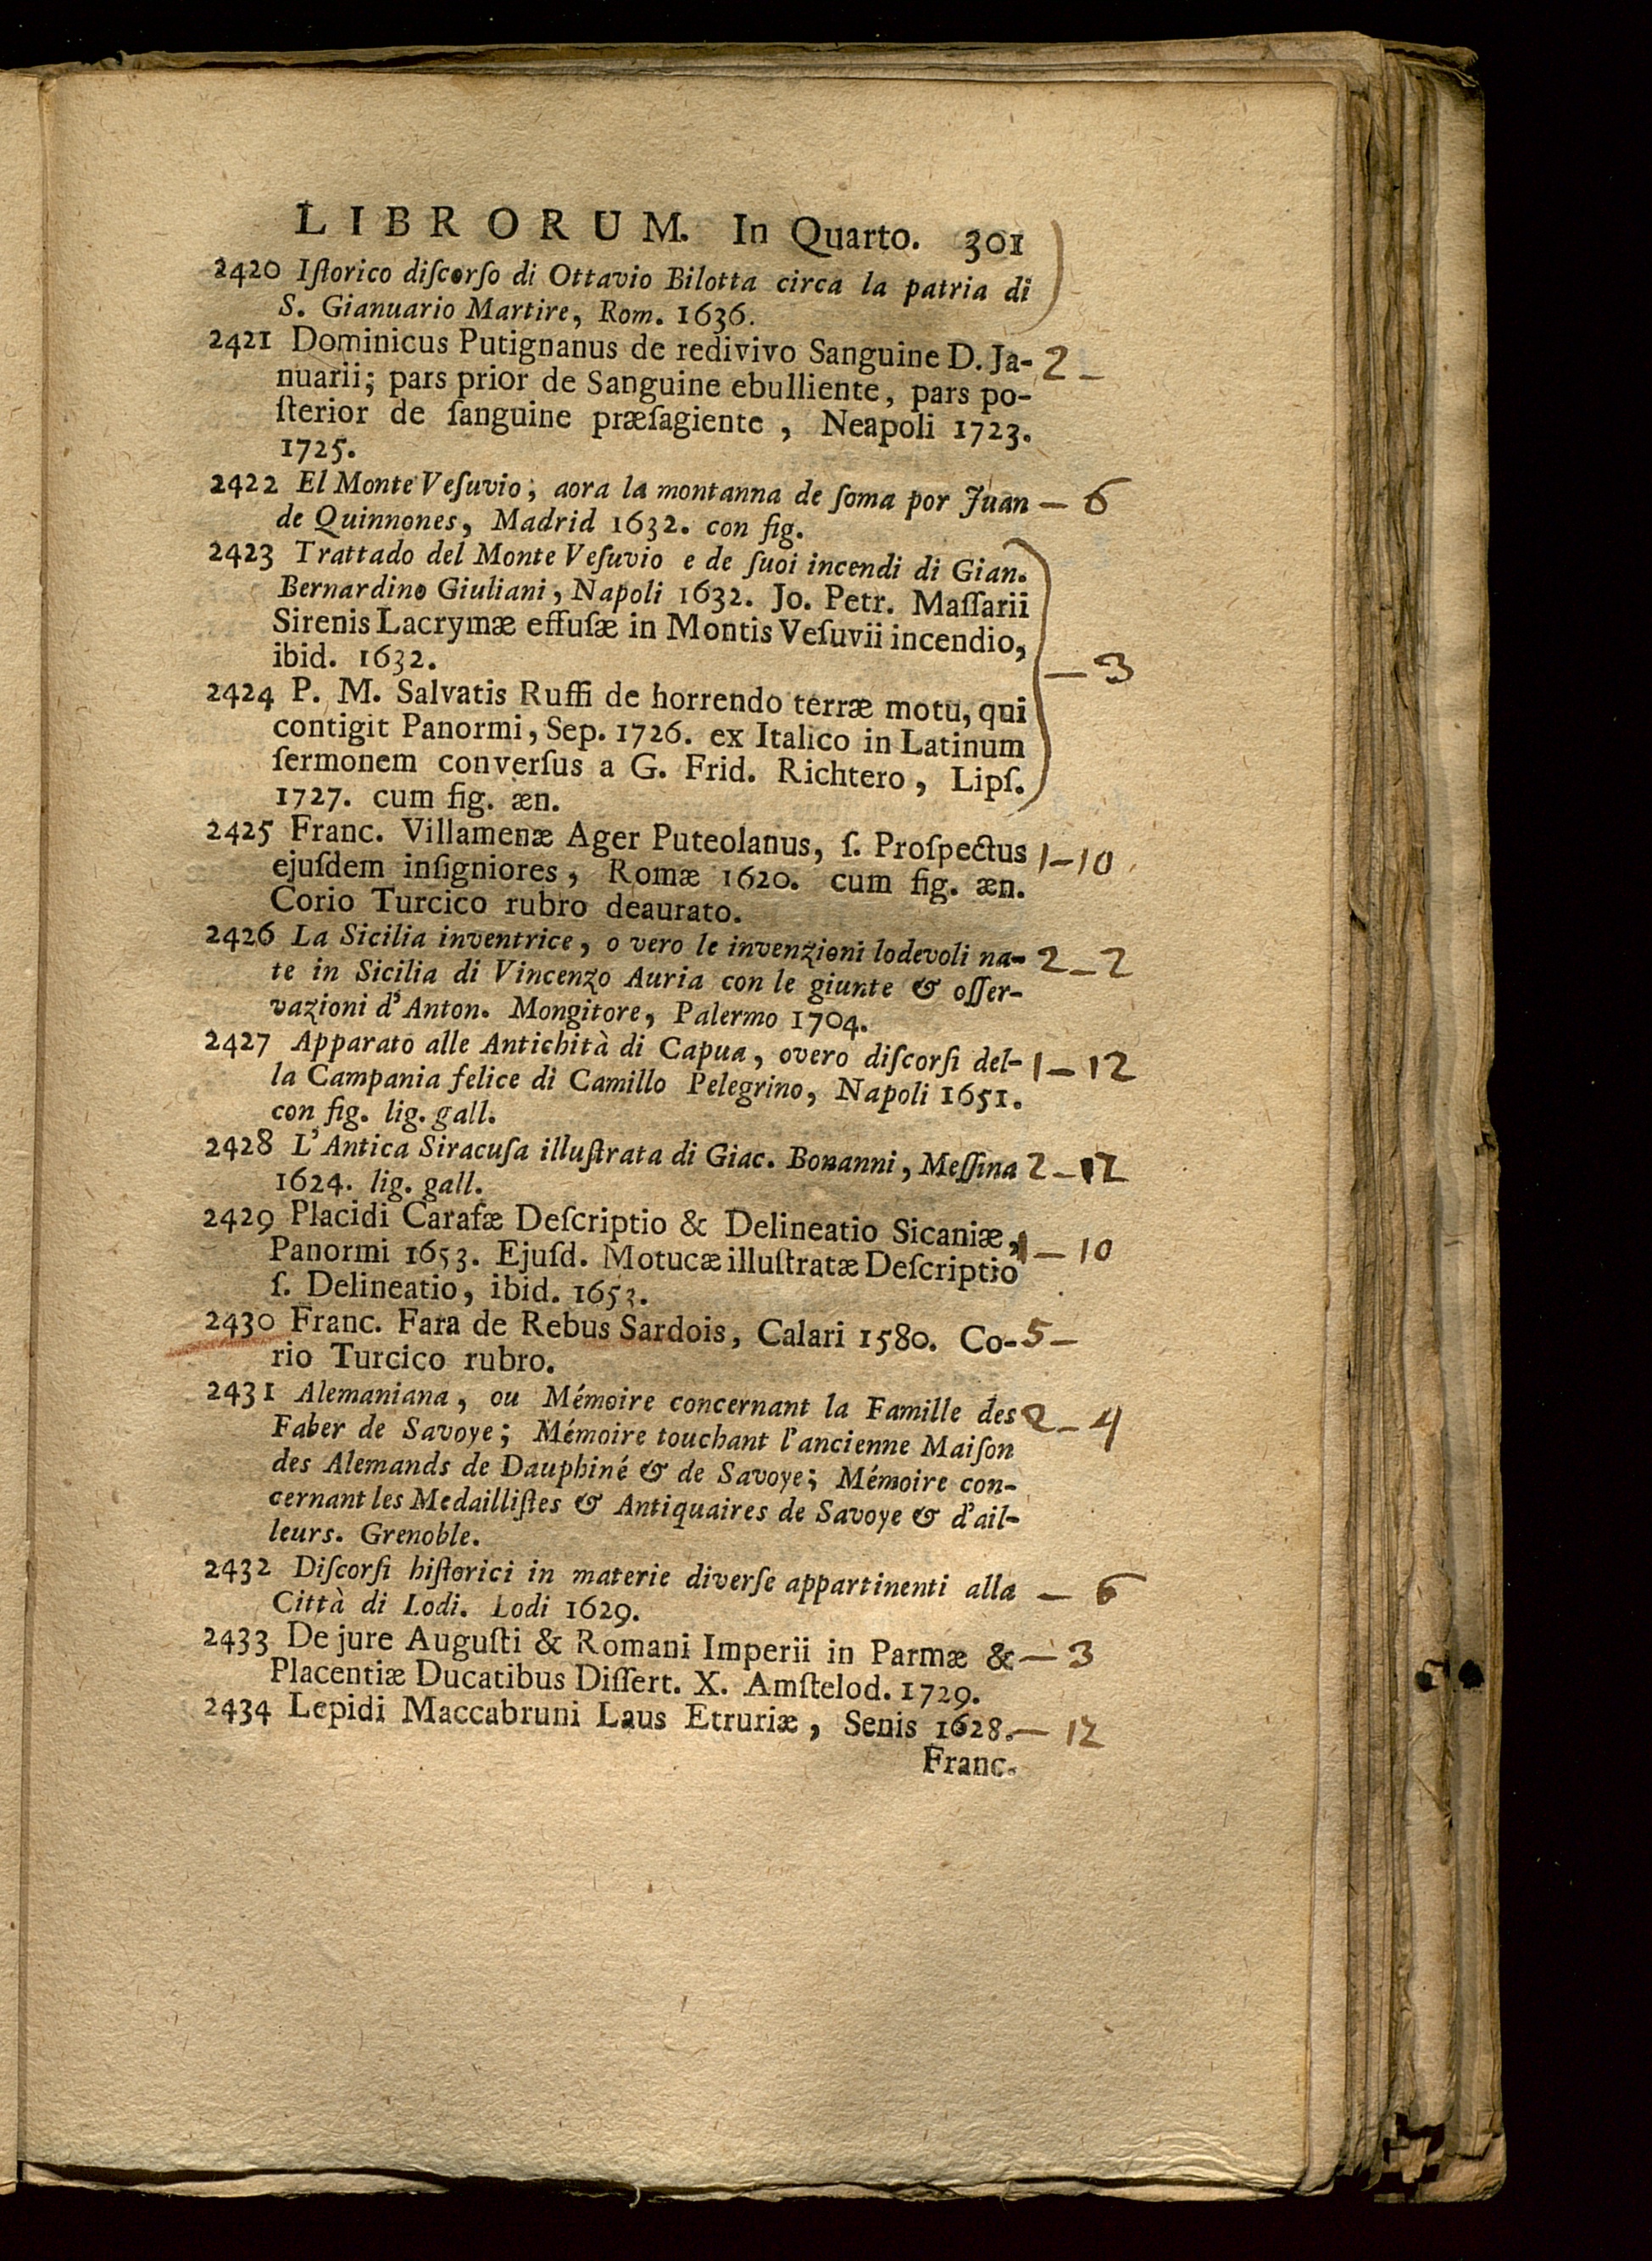 LIBRORUM. In Quarto. 301
2420 Iſtorico diſcorſo di Ottavio Bilotta circa la patria di
S. Gianuario Martire, Rom. 1636.
2421 Dominicus Putignanus de redivivo Sanguine D. Ja- 2 –
nuarii; pars prior de Sanguine ebulliente, pars po-
ſterior de ſanguine præſagiente, Neapoli 1723.
1725.
2422 El Monte Veſuvio; aora la montanna de ſoma por Juan – 6
de Quinnones, Madrid 1632. con fig.
2423 Trattado del Monte Veſuvio e de ſuoi incendi di Gian.
Bernardino Giuliani, Napoli 1632. Jo. Petr. Maſſarii
Sirenis Lacrymæ effuſæ in Montis Veſuvii incendio,
ibid. 1632. – 3
2424 P. M. Salvatis Ruffi de horrendo terræ motu, qui
contigit Panormi, Sep. 1726. ex Italico in Latinum
ſermonem converſus a G. Frid. Richtero, Lipſ.
1727. cum fig. æn.
2425 Franc. Villamenæ Ager Puteolanus, ſ. Proſpectus 1 – 10
ejuſdem inſigniores, Romæ 1620. cum fig. æn.
Corio Turcico rubro deaurato.
2426 La Sicilia inventrice, o vero le invenzioni lodevoli na- 2 – 2
te in Sicilia di Vincenzo Auria con le giunte & oſſer-
vazioni d'Anton. Mongitore, Palermo 1704.
2427 Apparato alle Antichità di Capua, overo diſcorſi del- 1 – 12
la Campania felice di Camillo Pelegrino, Napoli 1651.
con fig. lig. gall.
2428 L'Antica Siracuſa illuſtrata di Giac. Bonanni, Meſſina 2 – 12
1624. lig. gall.
2429 Placidi Carafæ Deſcriptio & Delineatio Sicaniæ, 1 – 10
Panormi 1653. Ejuſd. Motucæ illuſtratæ Deſcriptio
ſ. Delineatio, ibid. 1653.
2430 Franc. Fara de Rebus Sardois, Calari 1580. Co- 5 –
rio Turcico rubro.
2431 Alemaniana, ou Mémoire concernant la Famille des 2 – 4
Faber de Savoye; Mémoire touchant l'ancienne Maiſon
des Alemands de Dauphiné & de Savoye; Mémoire con-
cernant les Medailliſtes & Antiquaires de Savoye & d'ail-
leurs. Grenoble.
2432 Diſcorſi hiſtorici in materie diverſe appartinenti alla – 6
Città di Lodi. Lodi 1629.
2433 De jure Auguſti & Romani Imperii in Parmæ & – 3
Placentiæ Ducatibus Diſſert. X. Amſtelod. 1729.
2434 Lepidi Maccabruni Laus Etruriæ, Senis 1628. – 12
Franc.